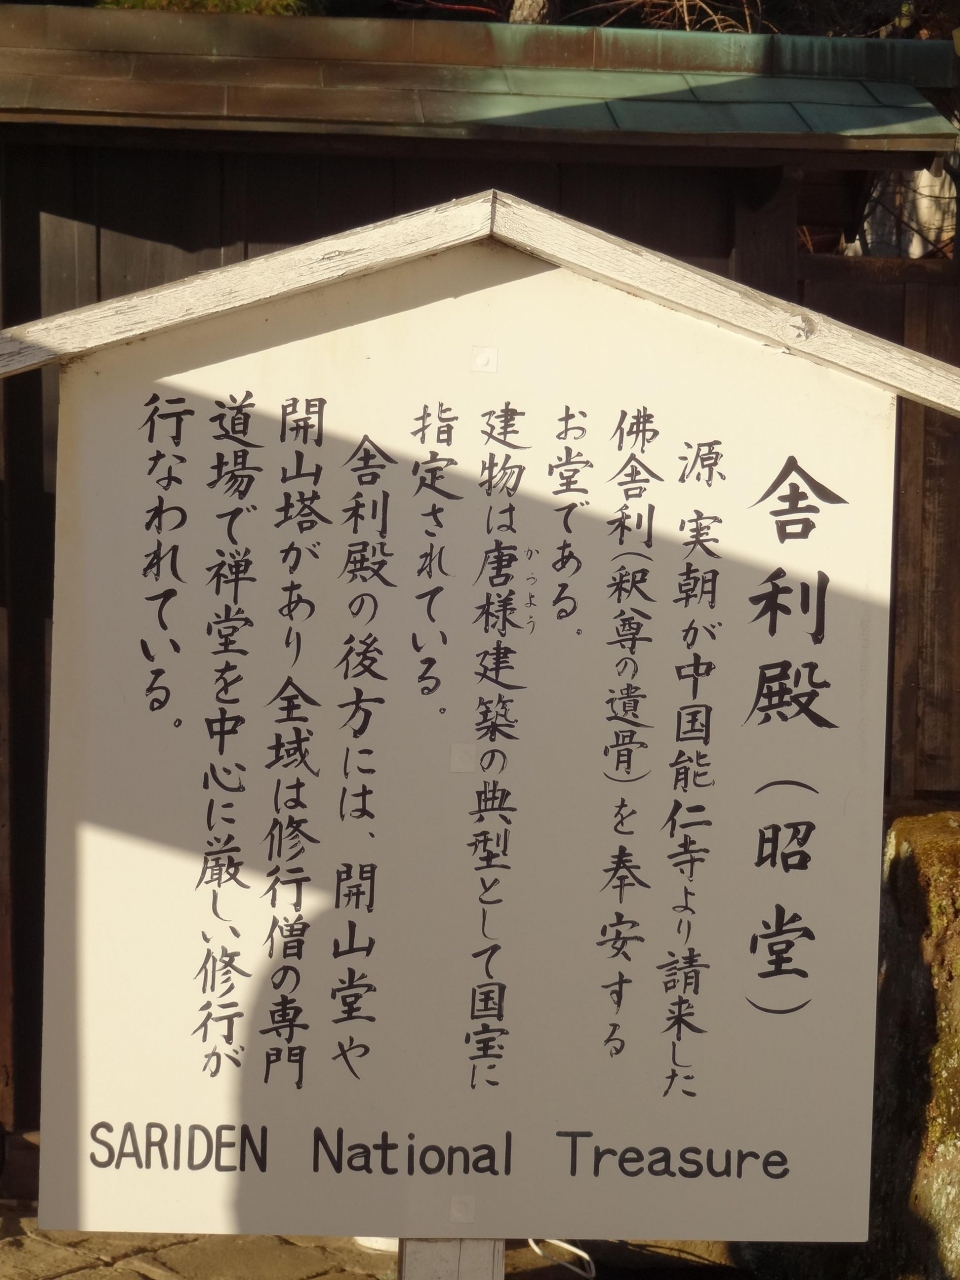 舎利殿（昭堂）
源 実朝が中国能仁寺より請来した
佛舎利（釈尊の遺骨）を奉安する
お堂である。
建物は唐様建築の典型として国宝に
からよう
指定されている。
舎利殿の後方には、開山堂や
開山塔があり全域は修行僧の専門
道場で禅堂を中心に厳しい修行が
行なわれている。
SARIDEN National Treasure